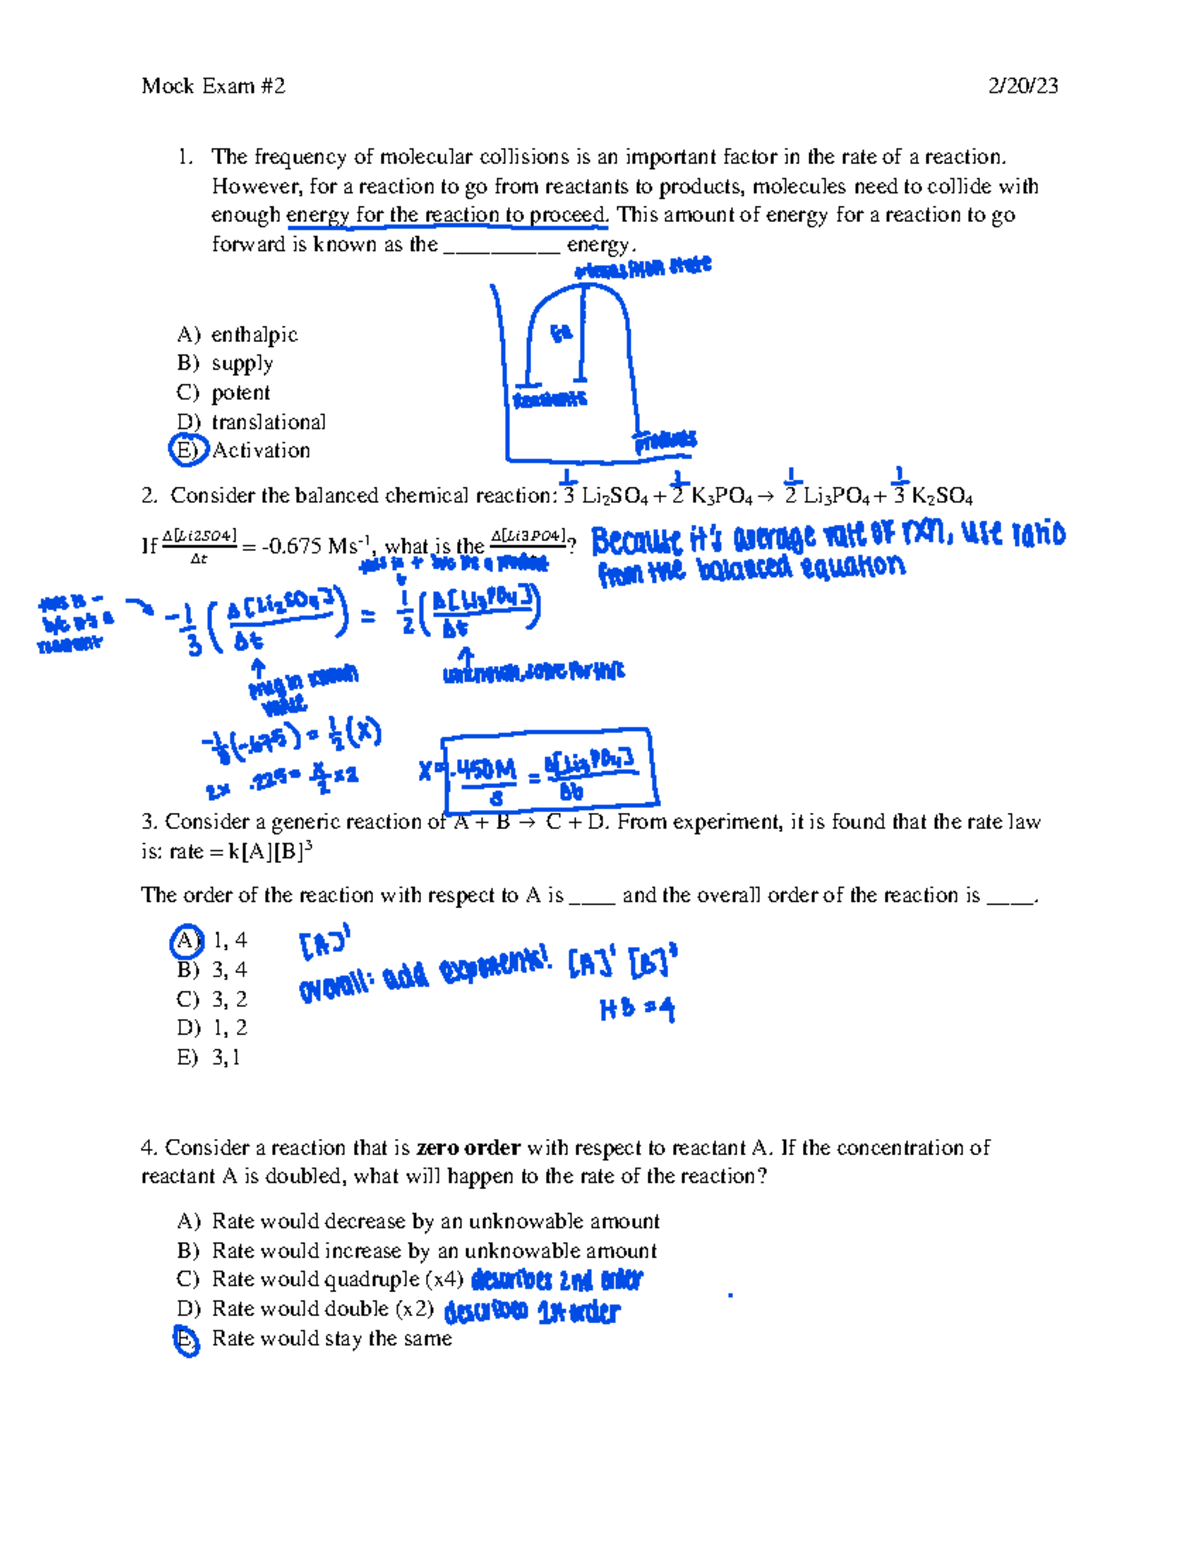 Mock Exam #2 2/20/23
1. The frequency of molecular collisions is an important factor in the rate of a reaction.
However, for a reaction to go from reactants to products, molecules need to collide with
enough energy for the reaction to proceed. This amount of energy for a reaction to go
forward is known as the __________ energy.
transition state
Ea
A) enthalpic
B) supply
C) potent
reactants
D) translational
products
E) Activation
1 1 1 1
2. Consider the balanced chemical reaction: 3 Li₂SO₄ + 2 K₃PO₄ → 2 Li₃PO₄ + 3 K₂SO₄
If Δ[Li2SO4]/Δt = -0.675 Ms⁻¹, what is the Δ[Li3PO4]/?
Because it's average rate of rxn, use ratio
from the balanced equation
this is + b/c it's a product
this is - b/c it's a reactant
-1/3 (Δ[Li₂SO₄]/Δt) = 1/2 (Δ[Li₃PO₄]/Δt)
↑ plug in known value
↑ unknown, solve for this
-1/3(-.675) = 1/2(X)
2x .225 = X/2 x2
X = .450M/s = Δ[Li₃PO₄]/Δt
3. Consider a generic reaction of A + B → C + D. From experiment, it is found that the rate law
is: rate = k[A][B]³
The order of the reaction with respect to A is ____ and the overall order of the reaction is ____.
A) 1, 4
[A]¹
B) 3, 4
overall: add exponents! [A]¹ [B]³
C) 3, 2
1+3 = 4
D) 1, 2
E) 3,1
4. Consider a reaction that is zero order with respect to reactant A. If the concentration of
reactant A is doubled, what will happen to the rate of the reaction?
A) Rate would decrease by an unknowable amount
B) Rate would increase by an unknowable amount
C) Rate would quadruple (x4) describes 2nd order
D) Rate would double (x2) describes 1st order
E) Rate would stay the same